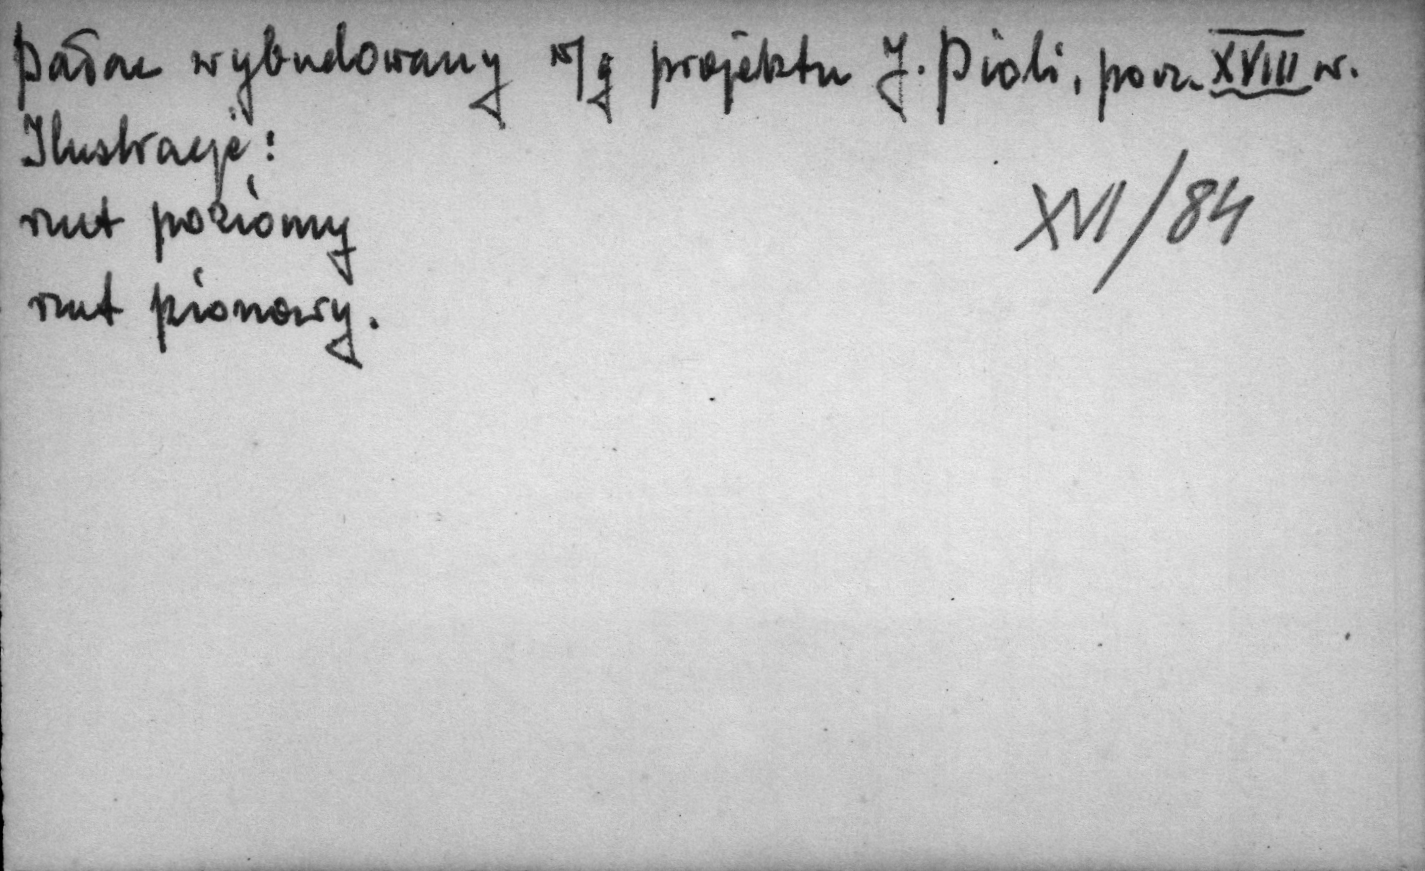 Pałac wybudowany w/g projektu J. Pioli, pocz. XVIII w.
Ilustracje:
rzut poziomy
XVI/84
rzut pionowy.